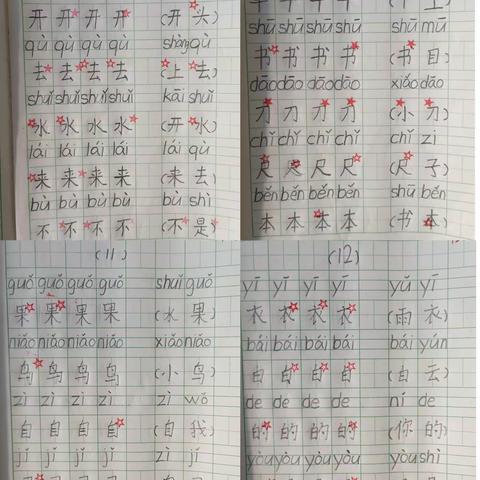 开 开 开 开 (开 头)
qù qù qù qù shàng qù
去 去 去 去 (上 去)
shuǐ shuǐ shuǐ shuǐ kāi shuǐ
水 水 水 水 (开 水)
lái lái lái lái lái qù
来 来 来 来 (来 去)
bù bù bù bù bù shì
不 不 不 不 (不 是)
shū shū shū shū shū mū
书 书 书 书 (书 目)
dāo dāo dāo dāo xiǎo dāo
刀 刀 刀 刀 (小 刀)
chǐ chǐ chǐ chǐ chǐ zi
尺 尺 尺 尺 (尺 子)
běn běn běn běn shū běn
本 本 本 本 (书 本)
(11)
guǒ guǒ guǒ guǒ shuǐ guǒ
果 果 果 果 (水 果)
niǎo niǎo niǎo niǎo xiǎo niǎo
鸟 鸟 鸟 鸟 (小 鸟)
zì zì zì zì zì wǒ
自 自 自 自 (自 我)
jǐ jǐ jǐ jǐ zì jǐ
(12)
yī yī yī yī yǔ yī
衣 衣 衣 衣 (雨 衣)
bái bái bái bái bái yún
白 白 白 白 (白 云)
de de de de ní de
的 的 的 的 (你 的)
yòu yòu yòu yòu yòu shì